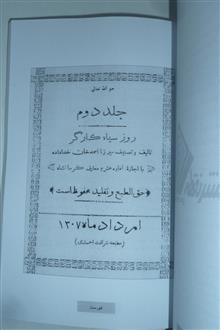 هو الله تعالی
جلد دوم
روز سیاه کارگر
تالیف و تصنیف میرزا احمد خان خداداده
با اجازهٔ اداره محترم معارف کرمانشاه
حق الطبع و تقلید محفوظ است
امرداد ماه ۱۳۰۷
(مطبعه شرافت احمدی)
فهرست